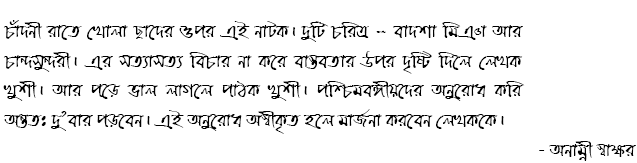 চাঁদনী রাতে খোলা ছাদের ওপর এই নাটক। দুটি চরিত্র -- বাদশা মিঞা আর
চান্দসুন্দরী। এর সত্যাসত্য বিচার না করে বাস্তবতার উপর দৃষ্টি দিলে লেখক
খুশী। আর পড়ে ভাল লাগলে পাঠক খুশী। পশ্চিমবঙ্গীয়দের অনুরোধ করি
অন্তত: দু'বার পড়বেন। এই অনুরোধ অস্বীকৃত হলে মার্জনা করবেন লেখককে।
- অনাম্নী স্বাক্ষর